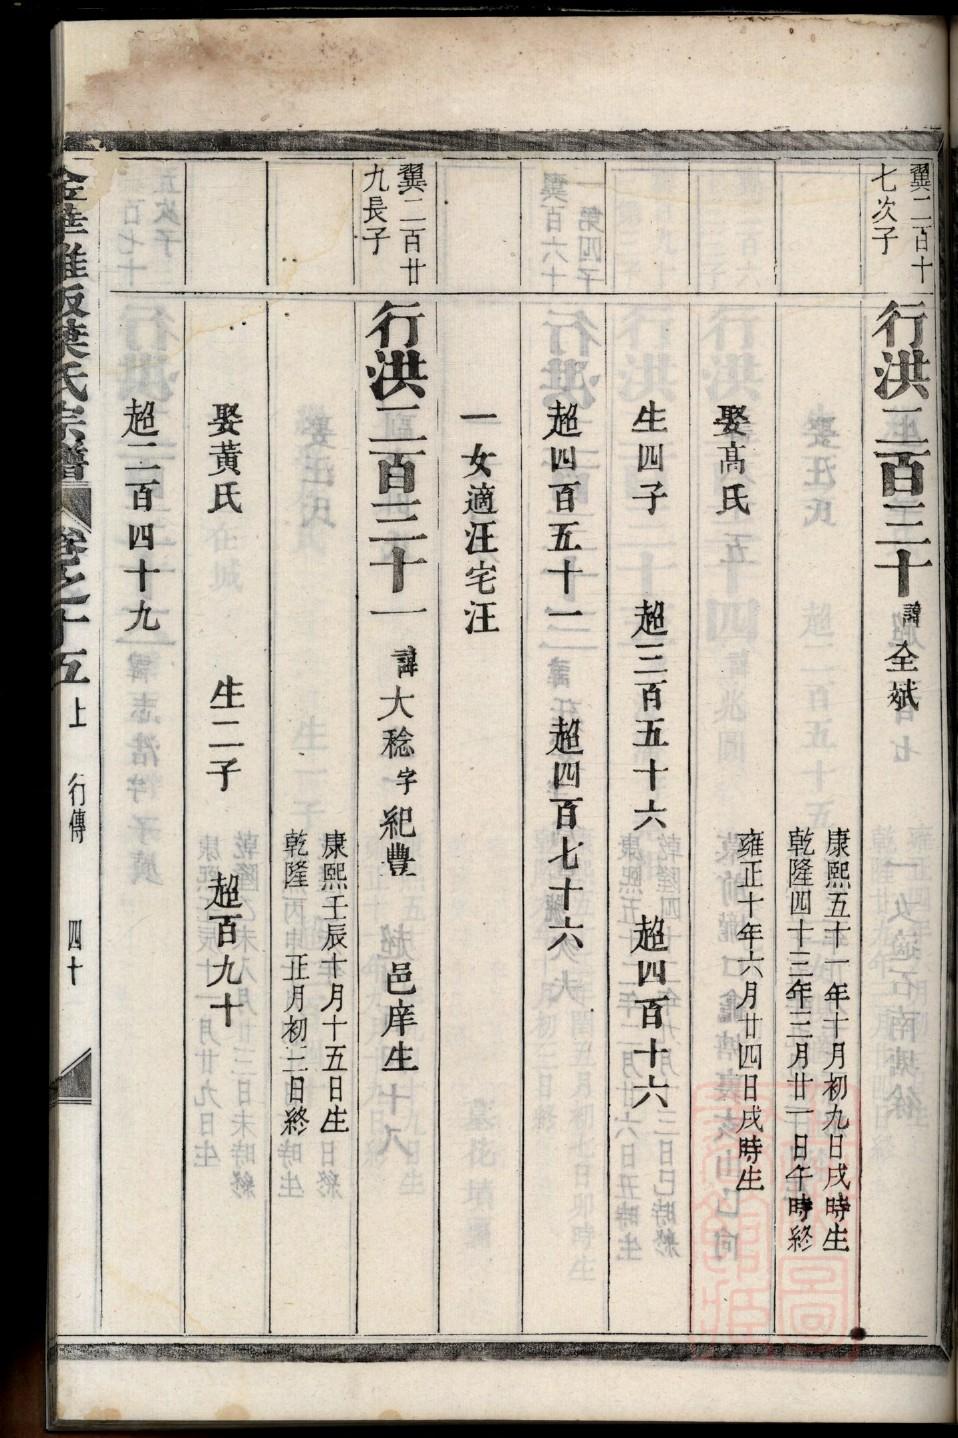 翼二百十
七次子
行洪三百三十 諱全斌
康熙五十一年十月初九日戌時生
乾隆四十三年三月廿一日午時終
娶高氏
雍正十年六月廿四日戌時生
生四子 超三百五十六 超四百十六
超四百五十一 超四百七十六
一女適汪宅汪
翼二百廿
九長子
行洪三百三十一 諱大稔 字紀豐 邑庠生
康熙壬辰十月十五日生
乾隆丙坤正月初三日終
娶黃氏 生二子 超百九十
超二百四十九
金華 葉氏宗譜 卷之十五 上 行傳 四十